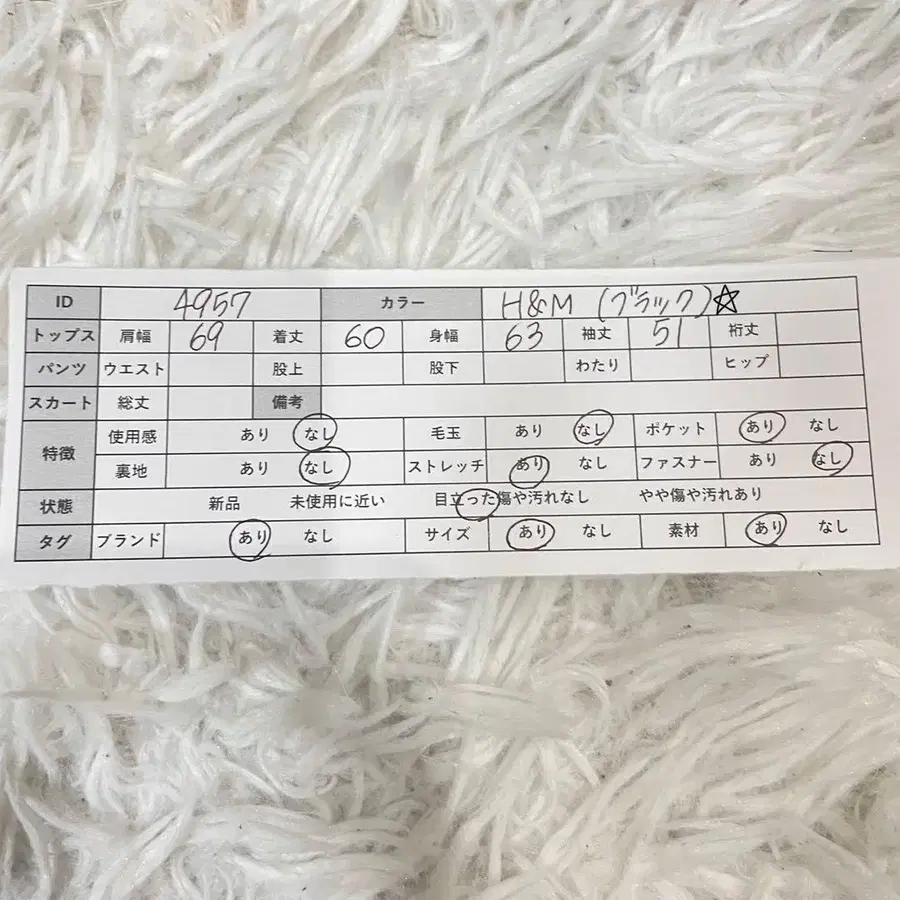 ID 4957 カラー H&M (ブラック)☆
トップス 肩幅 69 着丈 60 身幅 63 袖丈 51 裄丈
パンツ ウエスト 股上 股下 わたり ヒップ
スカート 総丈 備考
特徴 使用感 あり なし 毛玉 あり なし ポケット あり なし
裏地 あり なし ストレッチ あり なし ファスナー あり なし
状態 新品 未使用に近い 目立った傷や汚れなし やや傷や汚れあり
タグ ブランド あり なし サイズ あり なし 素材 あり なし